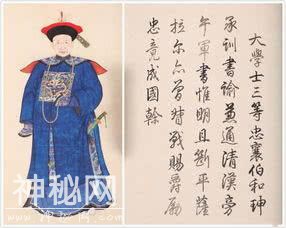 大學士三等忠襄伯和珅
承訓書諭兼通清漢旁
午軍書惟明且斷平薩
拉爾亦曾督戰賜爵勵
忠竟成國幹
神秘网